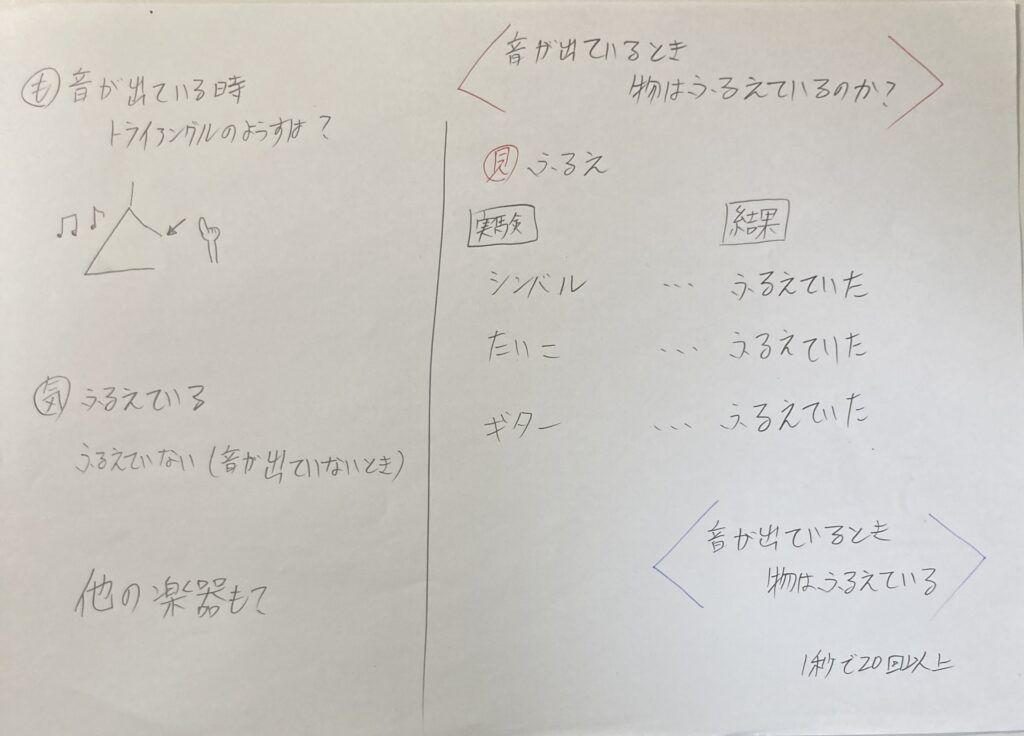 も 音が出ている時
トライアングルのようすは?
気 ふるえている
ふるえていない(音が出ていないとき)
他の楽器も?
音が出ているとき
物はふるえているのか?
見 ふるえ
実験 結果
シンバル … ふるえていた
たいこ … ふるえていた
ギター … ふるえていた
音が出ているとき
物はふるえている
1秒で20回以上